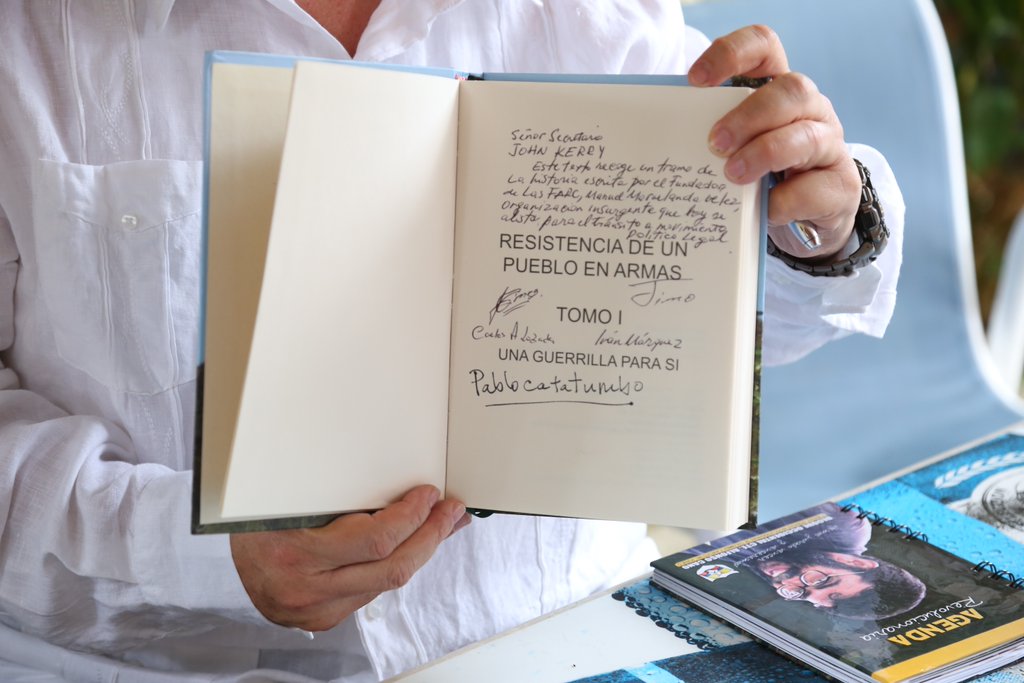 Señor Secretario
JOHN KERRY
Este texto recoge un tramo de
la historia escrita por el fundador
de las FARC, Manuel Marulanda Vélez,
organización insurgente que hoy se
alista para el tránsito a movimiento
Político Legal.
RESISTENCIA DE UN
PUEBLO EN ARMAS
Timo
TOMO I
Carlos A Lozada Iván Márquez
UNA GUERRILLA PARA SI
Pablo catatumbo
AGENDA
Revolucionaria